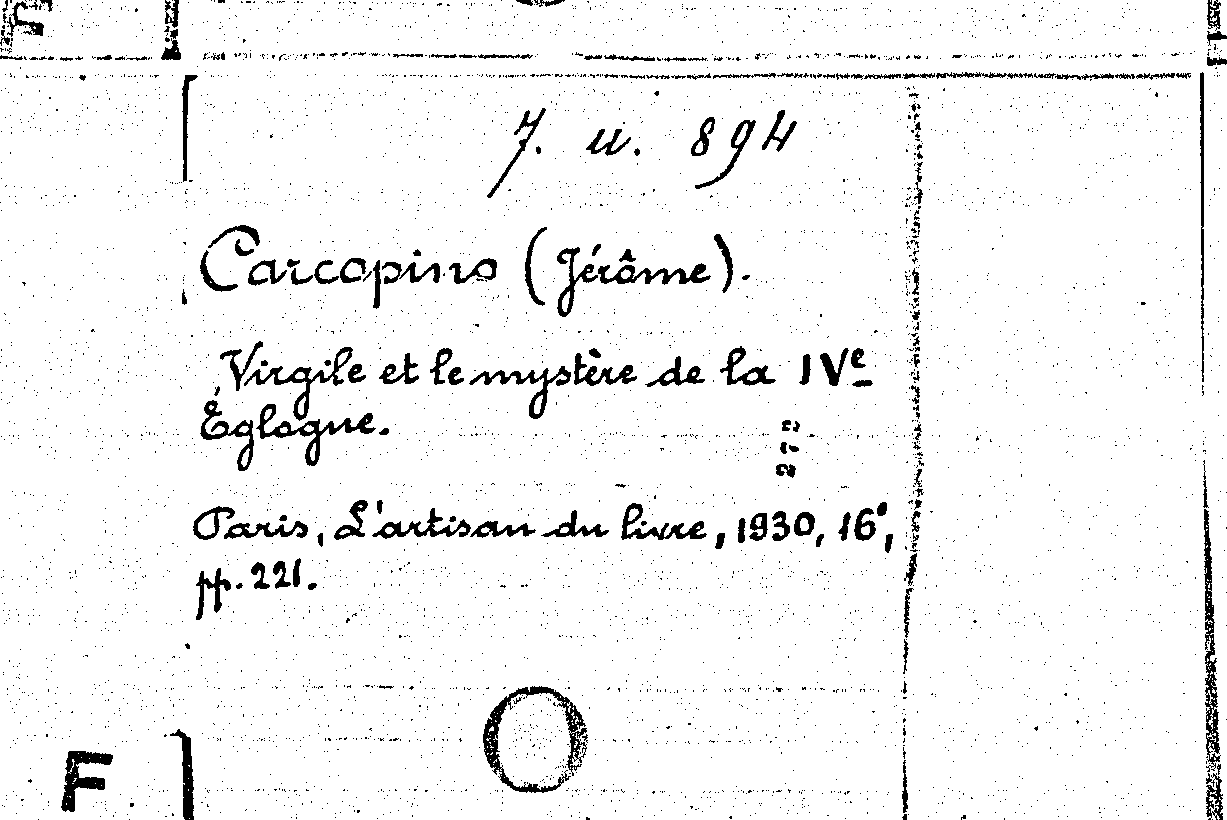 7. u. 894
Carcopino (Jérôme).
Virgile et le mystère de la IVe
Églogue.
Paris, L'artisan du livre, 1930, 16°,
pp. 221.
F